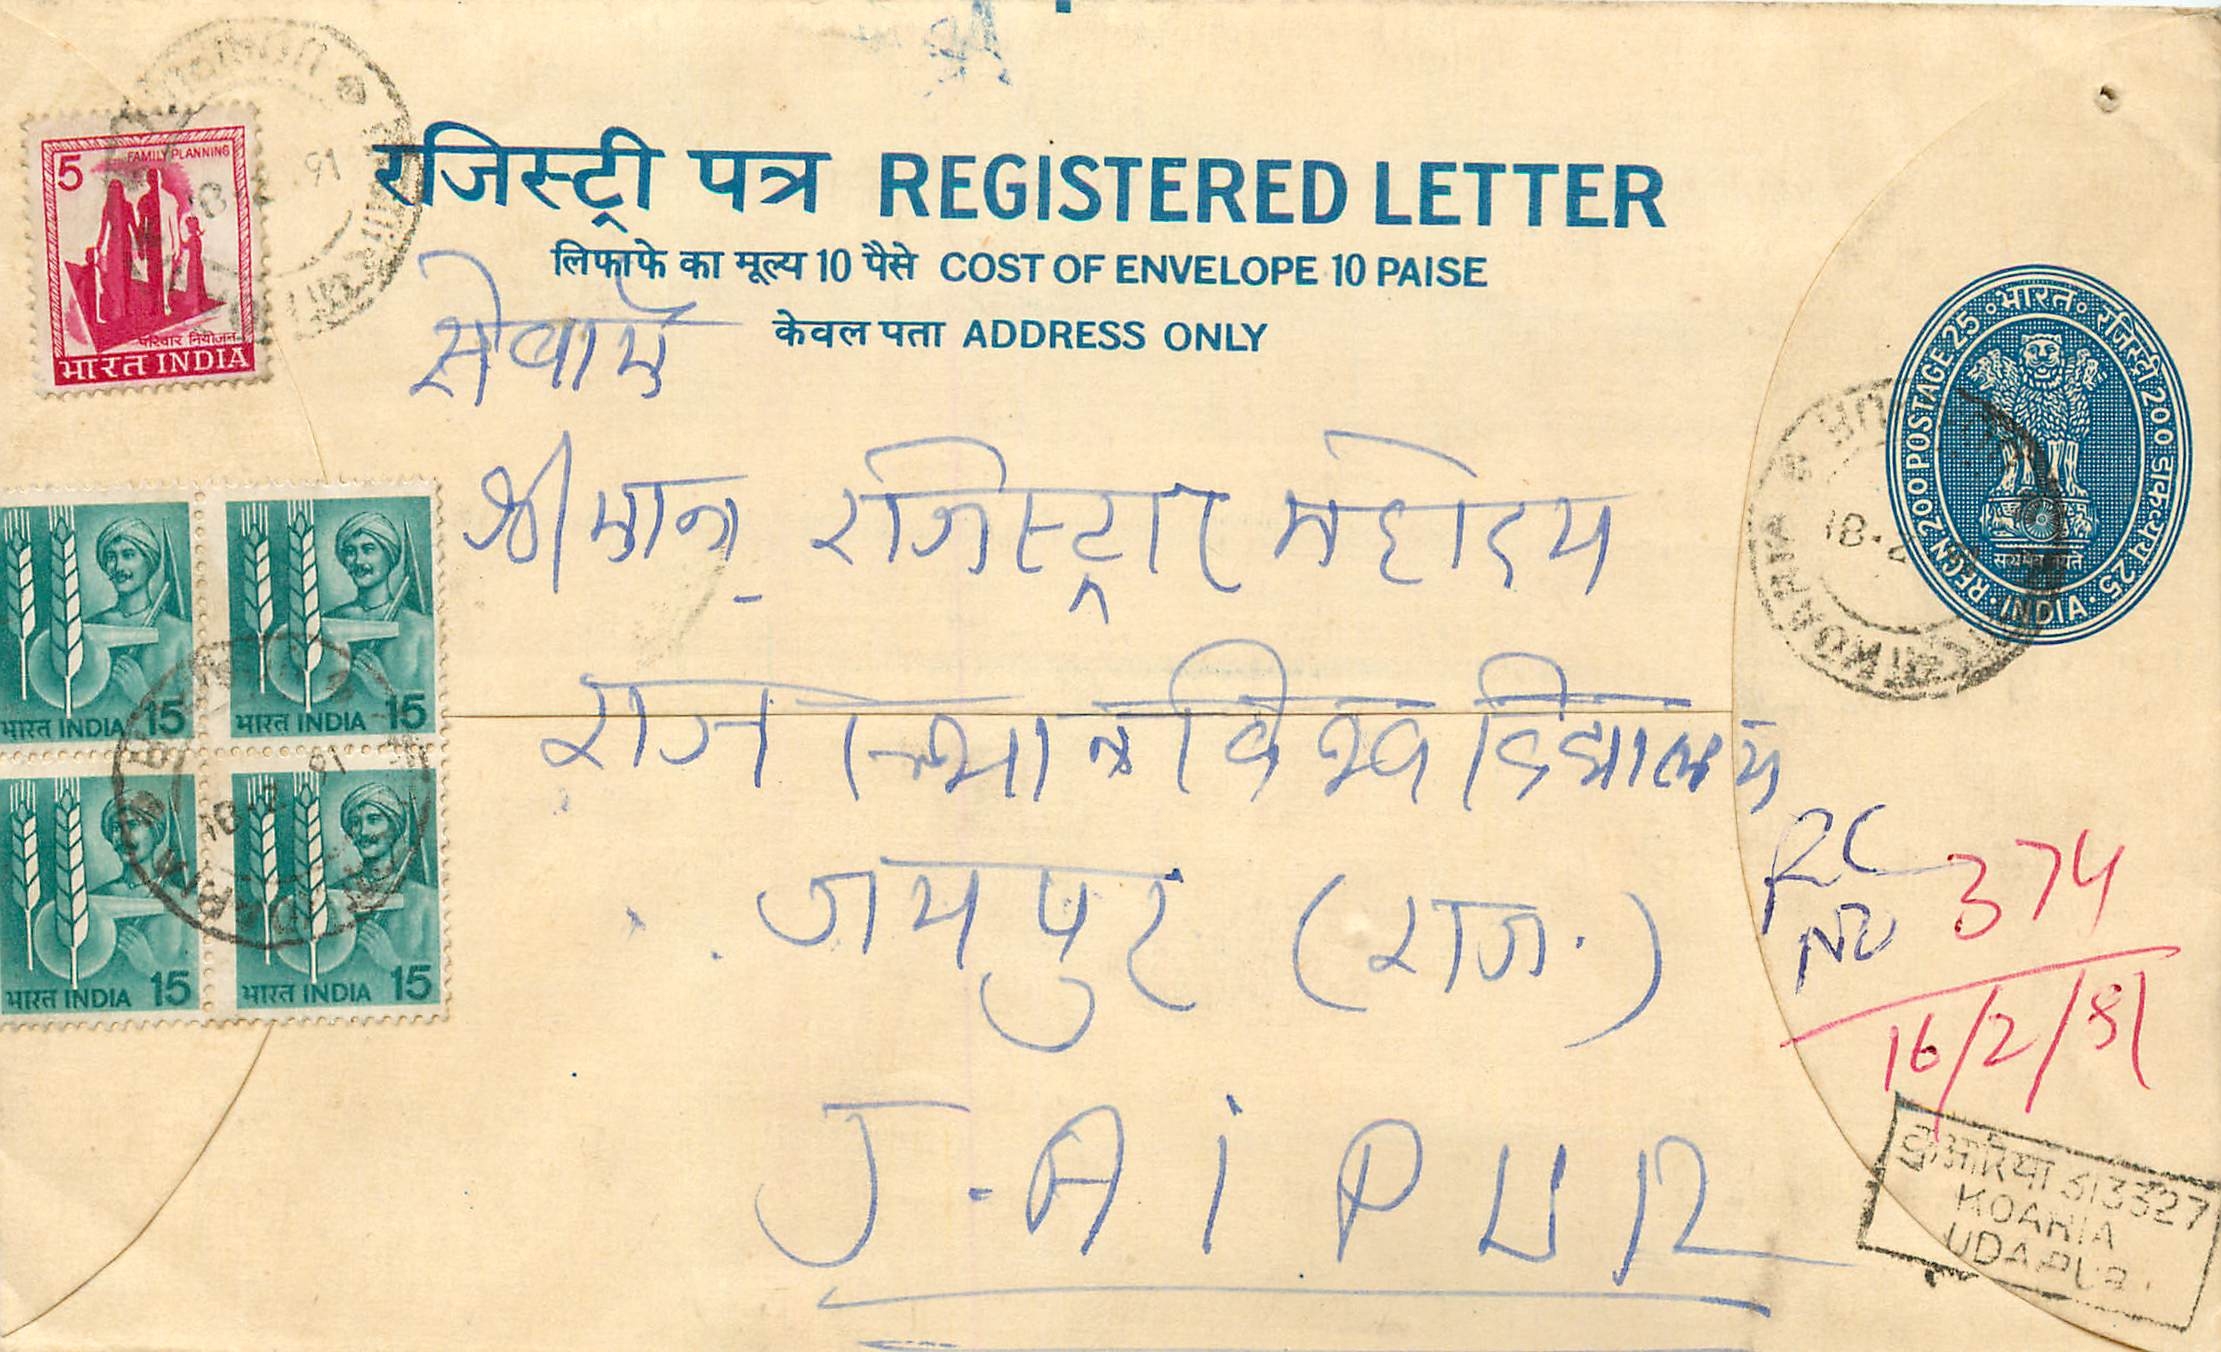 रजिस्ट्री पत्र REGISTERED LETTER
लिफाफे का मूल्य 10 पैसे COST OF ENVELOPE 10 PAISE
केवल पता ADDRESS ONLY
5
FAMILY PLANNING
परिवार नियोजन
भारत INDIA
भारत INDIA 15
भारत INDIA 15
भारत INDIA 15
भारत INDIA 15
भारत रजिस्ट्री 200 डाकद्रव्य 25
REGN 200 POSTAGE 25
सत्यमेव जयते
INDIA
सेवामे
श्रीमान रजिस्ट्रार महोदय
राजस्थान विश्वविद्यालय
जयपुर (राज.)
J-AiPUR
RL
NO 374
16/2/81
कुआरिया 313327
KOARIA
UDAIPUR
18-2 81
18-2
18-2 81